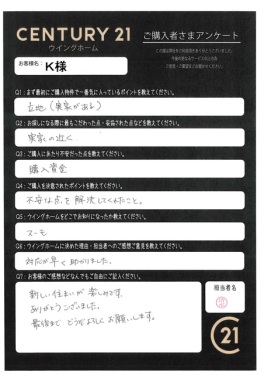 CENTURY 21
ウイングホーム
ご購入者さまアンケート
お客様名： K様
Q1：まず最初にご購入物件で一番気に入っているポイントを教えてください。
立地（実家がある）
Q2：お探しになる際に最もこだわった点・妥協された点などを教えてください。
実家の近く
Q3：ご購入にあたり不安だった点を教えてください。
購入資金
Q4：ご購入を決意されたポイントを教えてください。
不安な点を解決してくれたこと。
Q5：ウイングホームをどこでお知りになったか教えてください。
スーモ
Q6：ウイングホームに決めた理由・担当者へのご感想ご意見を教えてください。
対応が早く助かりました。
Q7：お客様のご感想などなんでもご自由にご記入ください。
新しい住まいが楽しみです。
ありがとうございました。
最後までどうぞよろしくお願いします。
担当者名
21